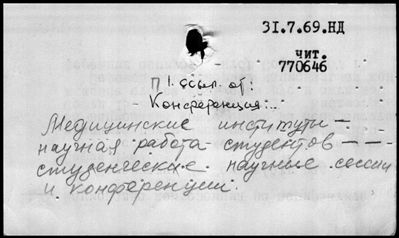 31.7.69.НД
чит.
770646
П 1. ссыл. от:
Конференция:..
Медицинские институты –
научная работа студентов – – –
студенческие научные сессии
и конференции.